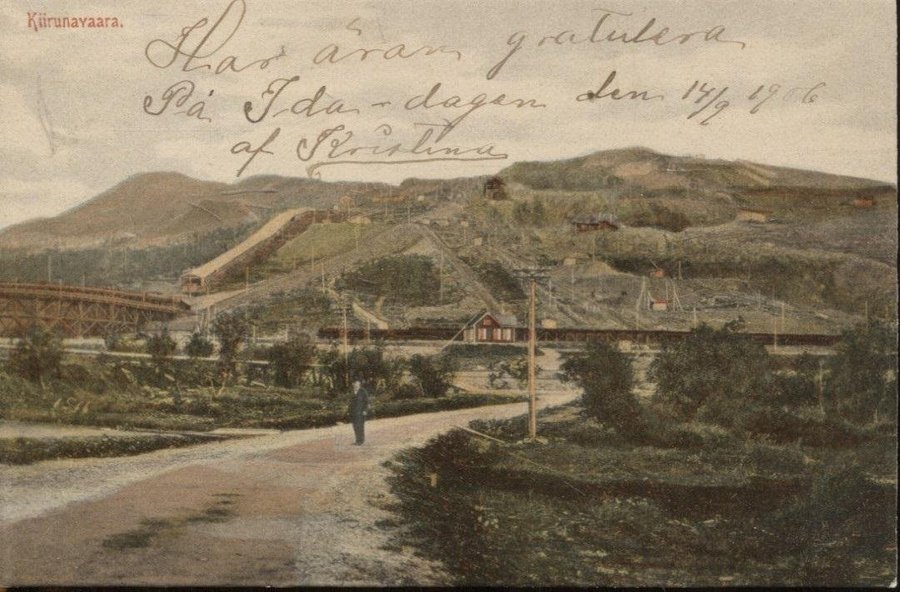 Kiirunavaara.
Har äran gratulera
På Ida-dagen den 14/9 1906
af Kristina